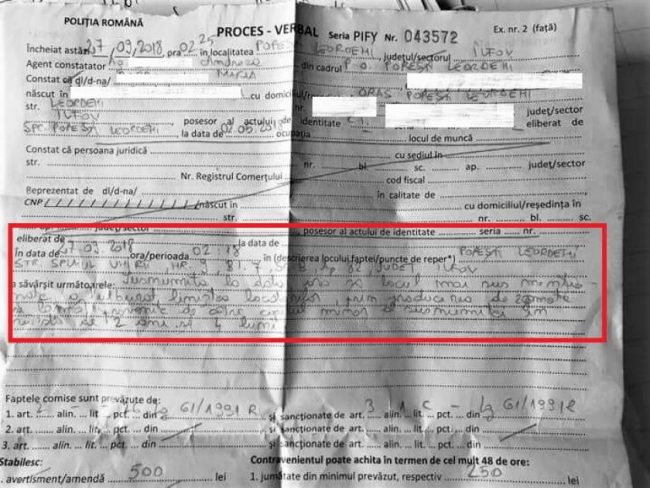 POLIȚIA ROMÂNĂ
PROCES - VERBAL Seria PIFY Nr. 043572 Ex. nr. 2 (față)
Încheiat astăzi 27,09,2018, ora 02.25 în localitatea POPEȘTI LEORDENI, județul/sectorul ILFOV
Agent constatator Andreea din cadrul P.O. POPEȘTI LEORDENI
Constat că dl/d-na/ MARIA
născut în cu domiciliul ORAȘ POPEȘTI LEORDENI
str. LEORDENI nr. județ/sector
ILFOV posesor al actului de identitate C.I. eliberat de
SPC POPEȘTI LEORDENI, la data de ocupația locul de muncă
Constat că persoana juridică cu sediul în
str. nr. bl. sc. ap. județ/sector
Nr. Registrul Comerțului cod fiscal
Reprezentat de dl/d-na/ în calitate de
CNP născut în cu domiciliul/reședința în
str. nr. bl. sc.
ap. județ/sector posesor al actului de identitate seria nr.
eliberat de la data de
În data de 27 09 2018 ora/perioada 02:18 în (descrierea locului faptei/puncte de reper*) POPEȘTI LEORDENI
STR. SPLAIUL UNIRII, NR. JUDEȚ ILFOV
a săvârșit următoarele: Susnumita la data ora și locul mai sus mențio-
nate a tulburat liniștea locatarilor, prin producerea de zgomote
de către copilul minor al susnumitei în
de 2 ani și 4 luni
Faptele comise sunt prevăzute de:
1. art. alin. lit. pct. din lg 61/1991 R și sancționate de art. 3 alin. 1 lit. c pct. - din lg 61/1991 R
2. art. alin. lit. pct. din și sancționate de art. alin. lit. pct. din
3. art. alin. lit. pct. din și sancționate de art. alin. lit. pct. din
Stabilesc: Contravenientul poate achita în termen de cel mult 48 de ore:
avertisment/amendă 500 lei 1. jumătate din minimul prevăzut, respectiv 250 lei